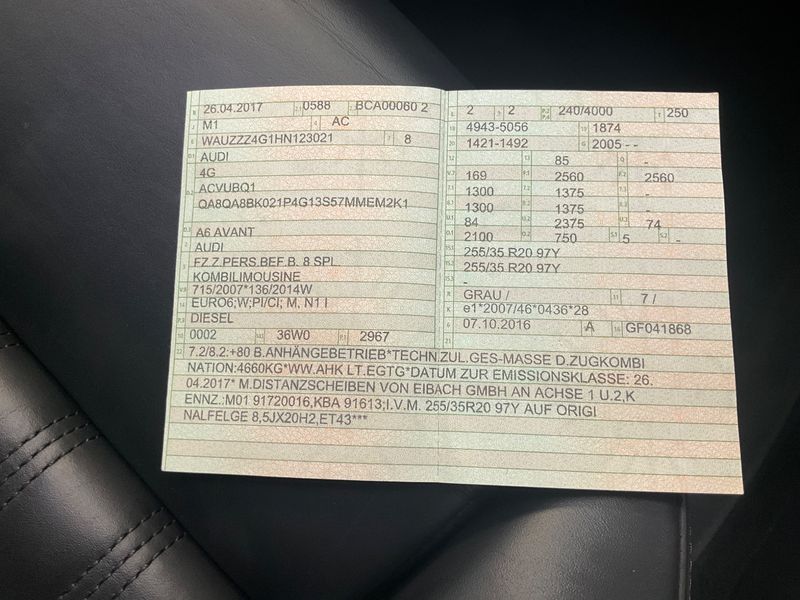 26.04.2017 0588 BCA00060 2
M1 AC
WAUZZZ4G1HN123021 8
AUDI
4G
ACVUBQ1
QA8QA8BK021P4G13S57MMEM2K1
A6 AVANT
AUDI
FZ.Z.PERS.BEF.B. 8 SPL.
KOMBILIMOUSINE
715/2007*136/2014W
EURO6;W;PI/CI; M, N1 I
DIESEL
0002 36W0 2967
2 2 240/4000 250
4943-5056 1874
1421-1492 2005 - -
85 -
169 2560 2560
1300 1375 -
1300 1375 -
84 2375 74
2100 750 5 -
255/35 R20 97Y
255/35 R20 97Y
-
GRAU / 7 /
e1*2007/46*0436*28
07.10.2016 A GF041868
7.2/8.2:+80 B.ANHÄNGEBETRIEB*TECHN.ZUL.GES-MASSE D.ZUGKOMBI
NATION:4660KG*WW.AHK LT.EGTG*DATUM ZUR EMISSIONSKLASSE: 26.
04.2017* M.DISTANZSCHEIBEN VON EIBACH GMBH AN ACHSE 1 U.2,K
ENNZ.:M01 91720016,KBA 91613;I.V.M. 255/35R20 97Y AUF ORIGI
NALFELGE 8,5JX20H2,ET43***